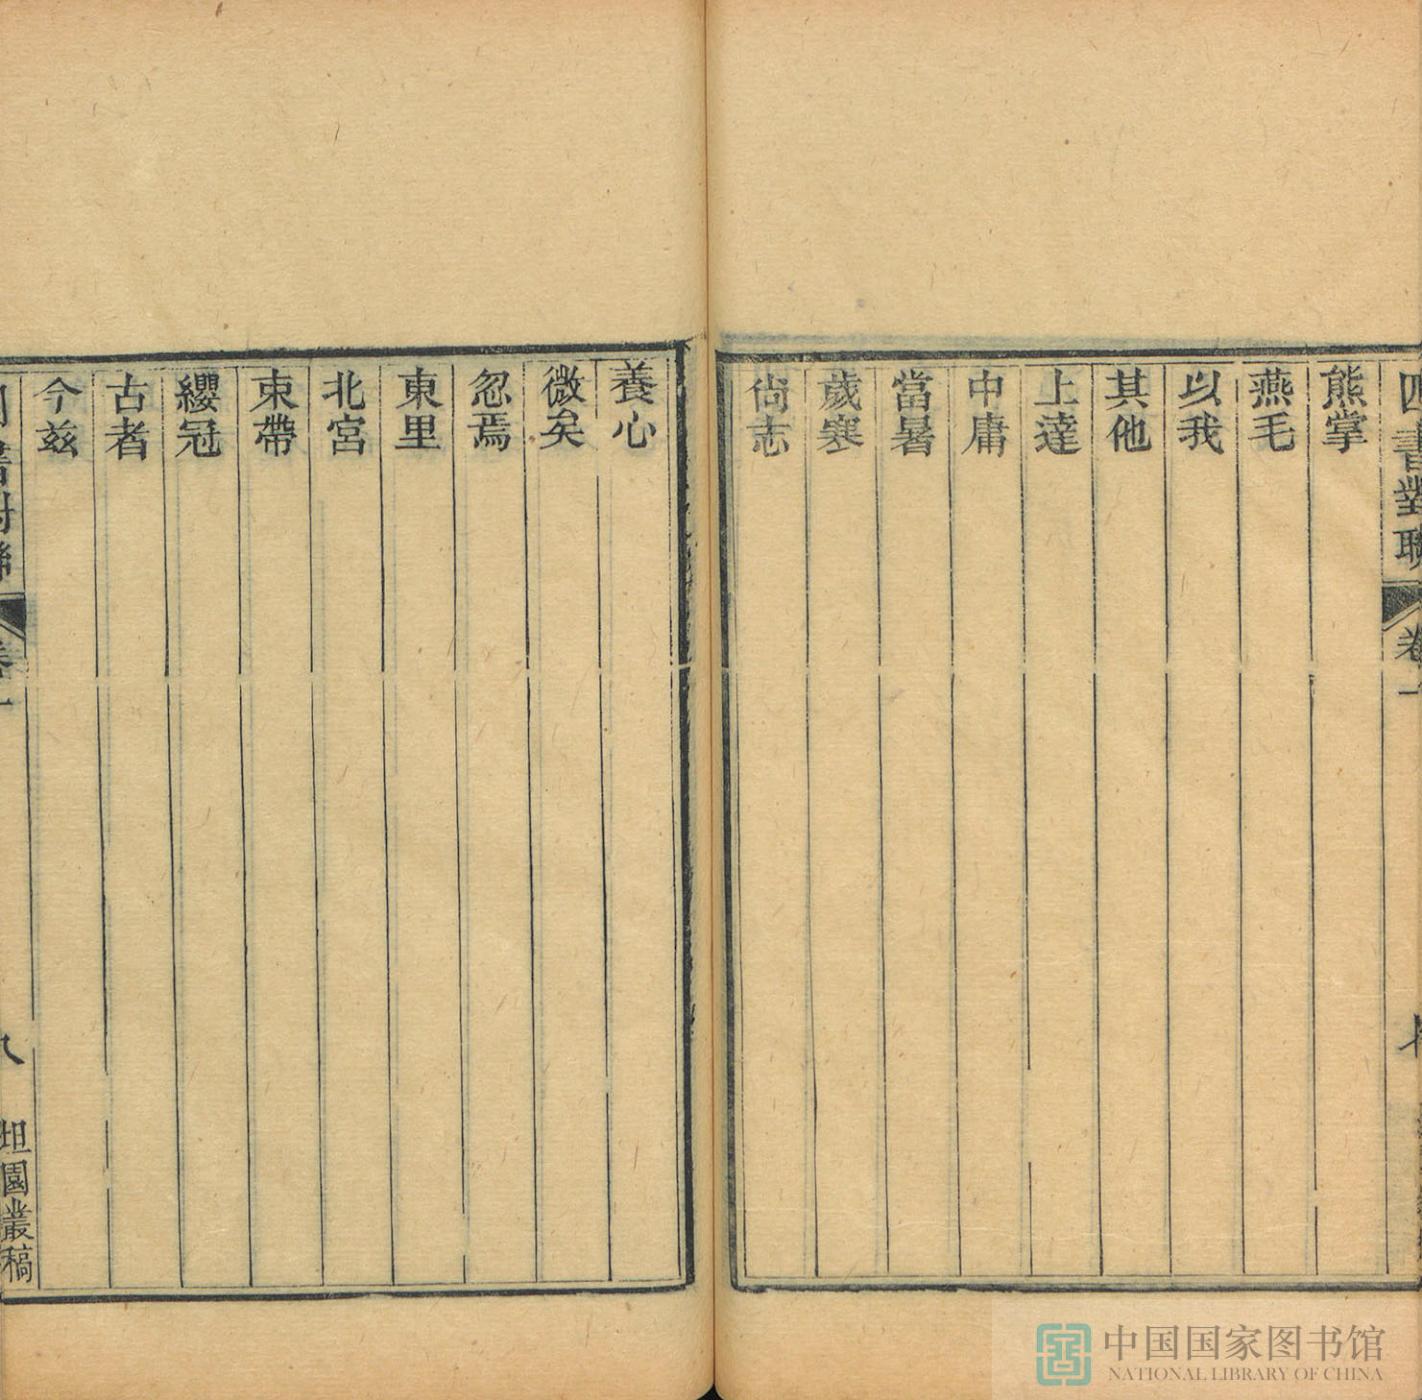 四書對聯 卷一
熊掌
燕毛
以我
其他
上達
中庸
當暑
歲寒
尙志
養心
微矣
忽焉
東里
北宮
束帶
纓冠
古者
今茲
四書對聯 卷一 八 坦園叢稿
中国国家图书馆
NATIONAL LIBRARY OF CHINA